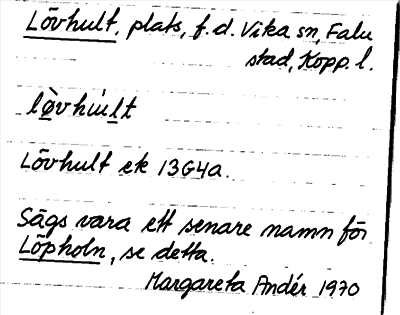 Lövhult, plats, f.d. Vika sn, Falu
stad, Kopp. l.
lø̀vhúlt
Lövhult ek 13G4a.
Sägs vara ett senare namn för
Löpholn, se detta.
Margareta Andér 1970